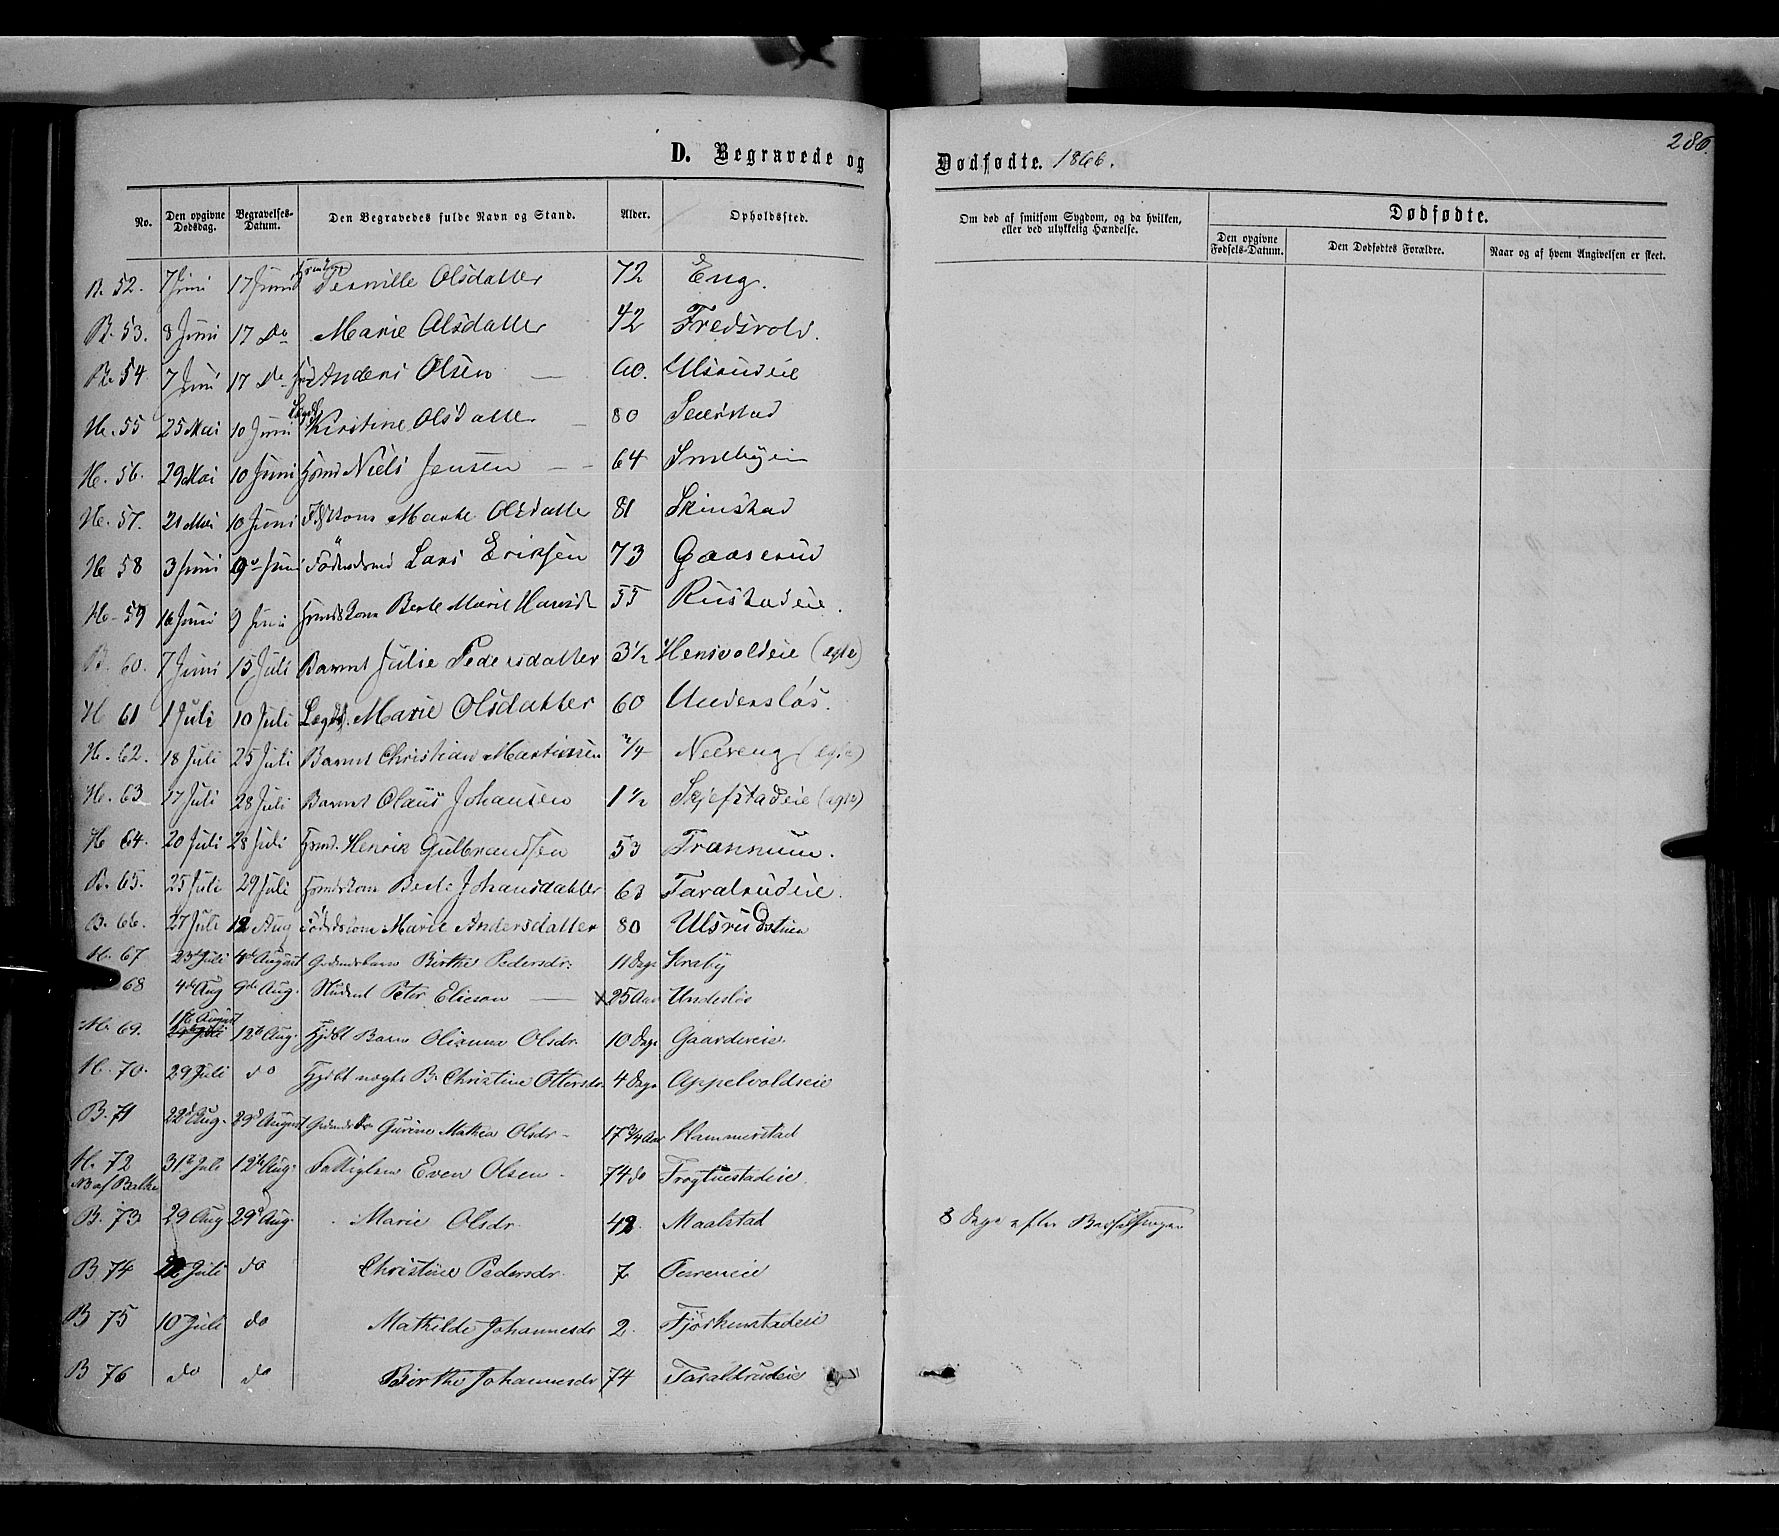 286.
D. Begravede og Dødfødte. 1866.
No. Den opgivne Dødsdag. Begravelses-Datum. Den Begravedes fulde Navn og Stand. Alder. Opholdssted. Om død af smitsom Sygdom, og da hvilken, eller ved ulykkelig Hændelse. Dødfødte.
Den opgivne Fødsels-Datum. Den Dødfødtes Forældre. Naar og af hvem Angivelsen er skeet.
B. 52. 7 Juni 17 Juni Pernille Olsdatter 72 Eng.
B. 53. 8 Juni 17 Do Marie Olsdatter 42 Fredsvold.
B. 54 7 Juni 17 Do Anders Olsen — 60. Ulsrudeie
H. 55 25 Mai 10 Juni Kirstine Olsdatter — 80 Seierstad
H. 56. 29 Mai 10 Juni Hmd Niels Jensen — — 64 Smebyeie
H. 57. 21 Mai 10 Juni Marte Olsdatter 81 Skinstad
H 58 3 Juni Juni Lars Eriksen 73 Gaaserud
H. 59 16 Juni 9 Juni Hmdskone Berte Marie Hansd 55 Rustadeie.
B. 60. 7 Juni 15 Juli Barnet Julie Pedersdatter 3 1/2 Hensvoldeie (egte)
H 61 1 Juli 10 Juli Lægdsl. Marie Olsdatter 60 Undersløs.
H. 62. 18 Juli 25 Juli Barnet Christian Martinsen /4 (egte)
H. 63 17 Juli 28 Juli Barnet Olaus Johansen 1 1/2 Skjefstadeie (egte)
H 64. 20 Juli 28 Juli Hmd. Henrik Gulbrandsen 53 Trannum.
B. 65. 25 Juli 29 Juli Hmdskone Berte Johansdatter 63 Taralrudeie.
B. 66. 27 Juli 12 Aug Føderdskone Marie Andersdatter 80 Ulsrudstuen
H. 67 23 Juli 4de August Gmdsbarn Birthe Pedersdr: 11 Dage Kraby
68 4de Aug 9de Aug. Student Peter Elieson — x 25 Aar Undesløs
H. 69. 11te August 12te Aug. Hmdbt Barn Olianna Olsdr. 10 Dage Gaardereie.
H. 70. 29 Juli do Hmdbt uægte B. Christine Ottersdr. 4 Dage Appelvoldseie
B. 71 22d Aug. 29d August Gurine Mathea Olsdr — 17 3/4 Aar Hammerstad
H. 72 31te Juli 12te Aug. Fattiglem Even Olsen. 74 do Frogtuestadeie.
NB af Bertha
B. 73 29 Aug 29d Aug. Marie Olsdr. 42. Maalstad 8 Dage efter Barselsengen
B 74 Juli do Christine Pedersdr. 7
B 75 10 Juli do Mathilde Johannesdr 2. Fjørkenstadeie
B 76 do do Birthe Johannesdr 74 Taraldrudeie